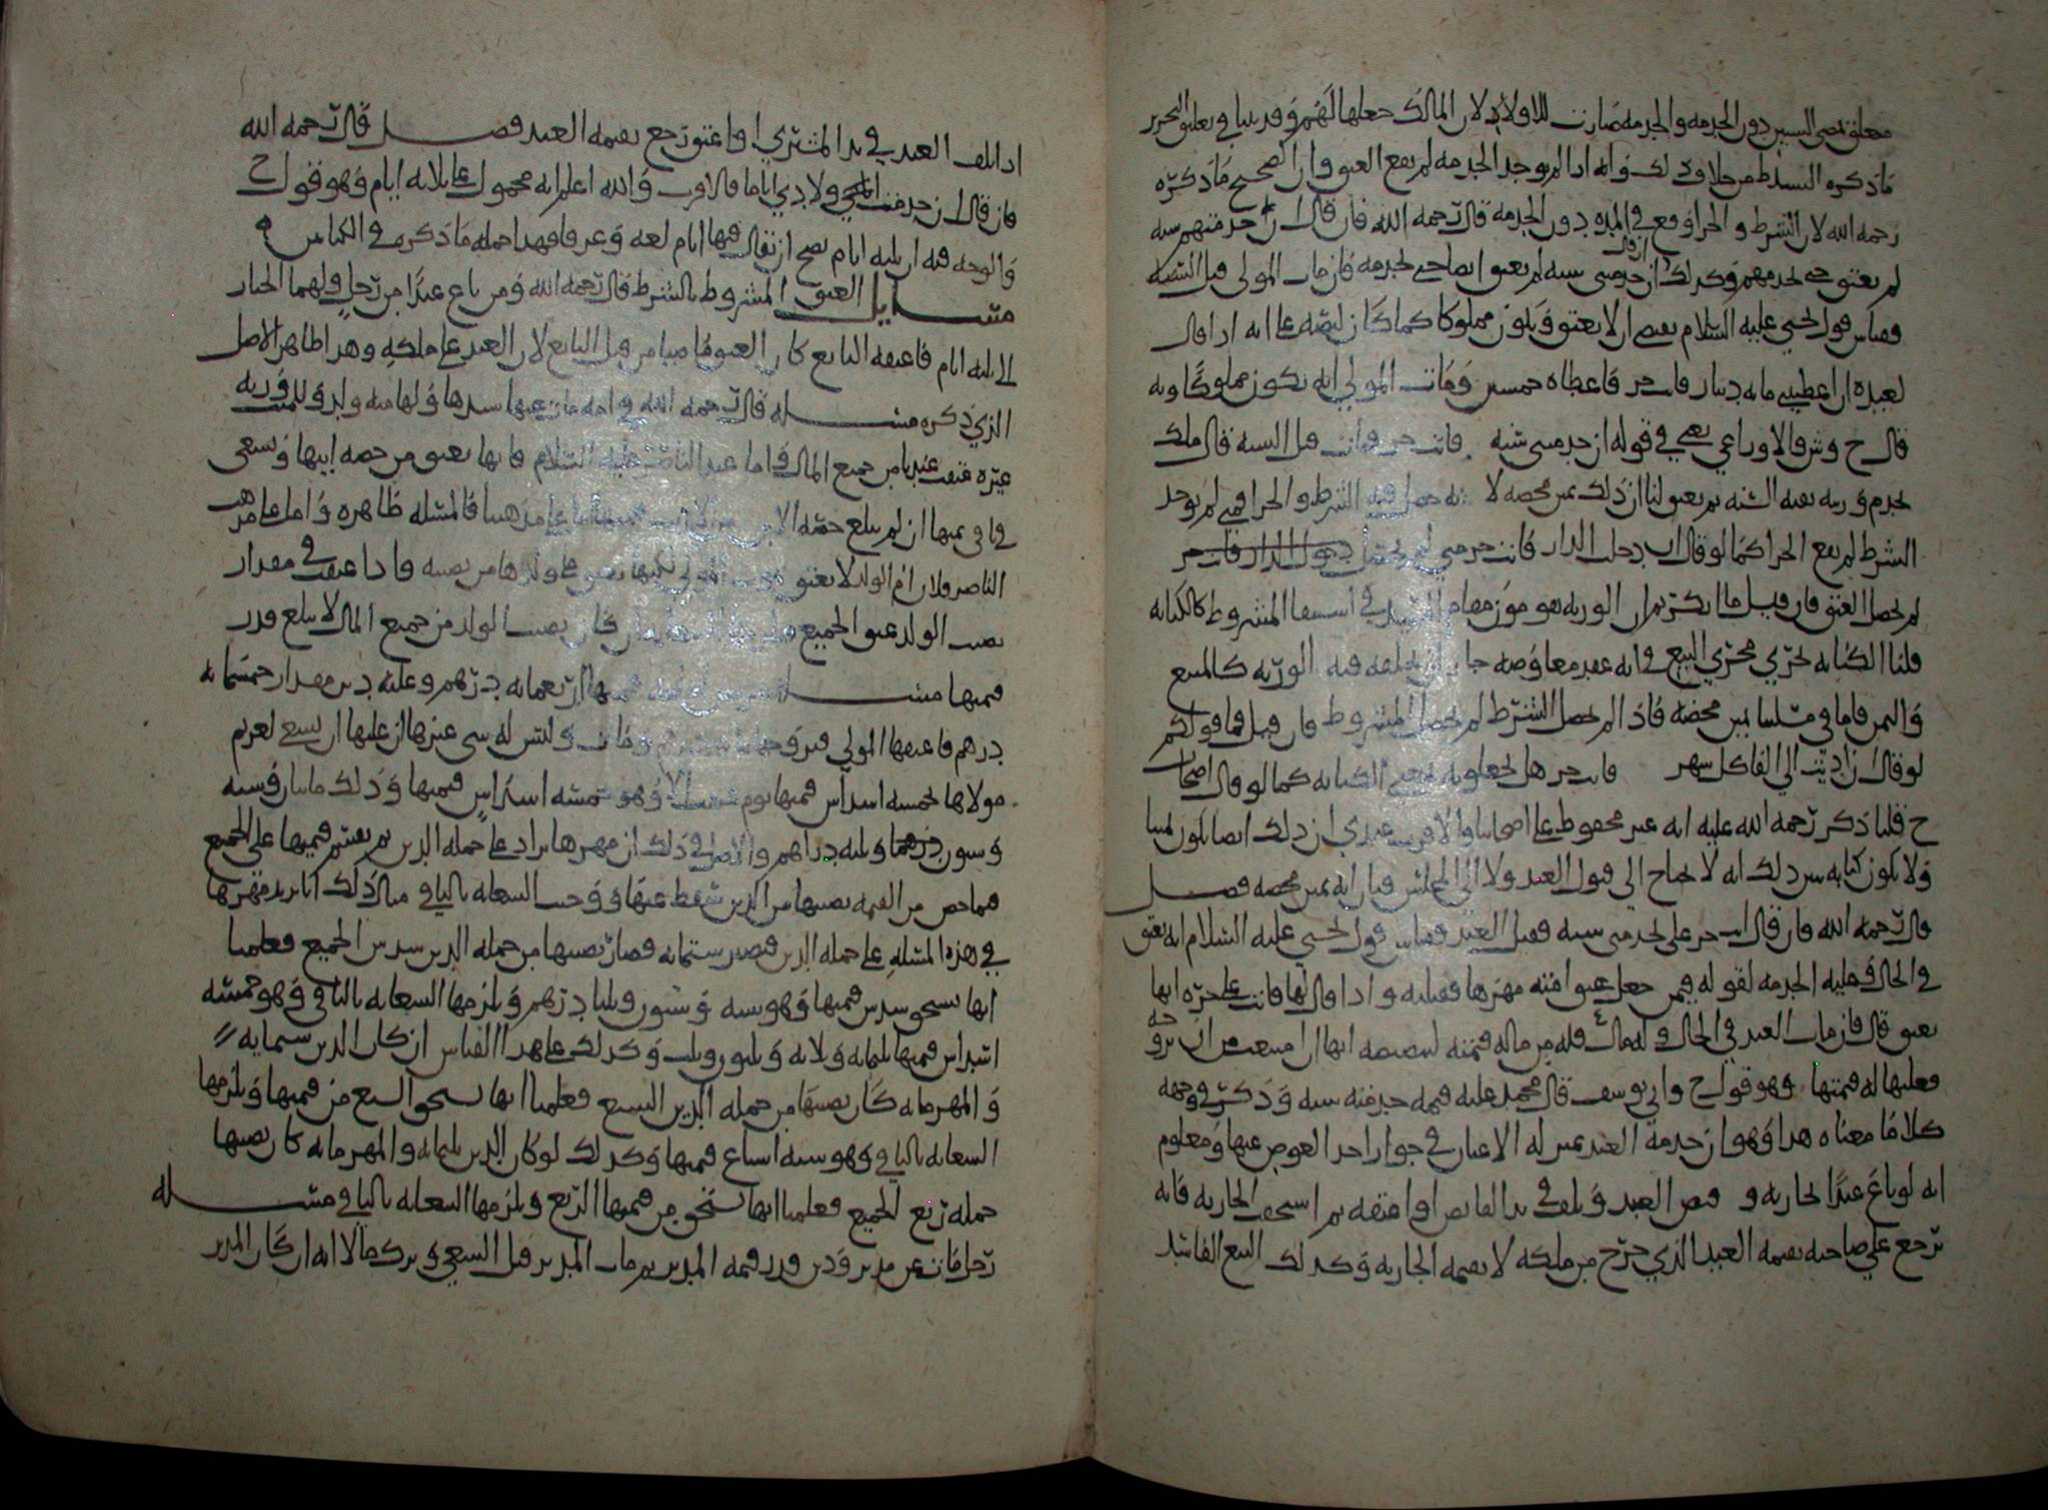 معلق بمضي السنين دون الخدمة والخدمة صارت للاولاد لان المالك جعلها لهم وقد بينا في تعليق التحرير
ما ذكره السيد ط من خلاف ذلك وانه اذا لم يوجد الخدمة لم يقع العتق وان الصحيح ما ذكره
رحمه الله لان الشرط والجزا وقع في المدة دون الخدمة قال رحمه الله فان قال ان خدمتهم سنة
لم يعتق حتى يخدمهم وكذلك ان قال ان خدمتني سنة لم يعتق ايضا حتى يخدمه فان مات المولى قبل السنة
فقياس قول يحيى عليه السلام يقتضي ان لا يعتق ويكون مملوكا كما كان لنصه على انه اذا قال
لعبده ان اعطيتني مائة دينار فانت حر فاعطاه خمسين ومات المولى انه يكون مملوكا وبه
قال ح وش والاوزاعي يعني في قوله ان خدمتني سنة فانت حر فمات قبل السنة قال ملك
يخدم ورثته بقية السنة ثم يعتق لنا ان ذلك يمين محضة لانه حصل فيه الشرط والجزا فمتى لم يوجد
الشرط لم يقع الجزا كما لو قال ان دخلت الدار فانت حر متى لم يحصل دخول الدار فانت حر
لم يحصل العتق فان قيل ما انكرتم ان الورثة يقومون مقام السيد في استيفا المشروط كالكتابة
قلنا الكتابة تجري مجرى البيع في انه عقد معاوضة جاز ان يخلفه فيه الورثة كالمبيع
والثمن فاما في مسئلتنا يمين محضة فاذا لم يحصل الشرط لم يحصل المشروط فان قيل فما قولكم
لو قال ان اديت الي الفا كل شهر فانت حر هل تجعلونه بمعنى الكتابة كما لو قال اصحاب
ح قلنا ذكر رحمه الله عليه انه غير محفوظ على اصحابنا والاقرب عندي ان ذلك ايضا يكون يمينا
ولا يكون كتابة يبين ذلك انه لا يحتاج الى قبول العبد ولا الى المجلس فبان انه يمين محضة فصل
قال رحمه الله فان قال انت حر على تخدمني سنة فقبل العبد فقياس قول يحيى عليه السلام انه يعتق
في الحال وعليه الخدمة لقوله فيمن جعل عتق امته مهرها فقبلته واذا قال لها فانت على حرة انها
تعتق قال فان مات العبد في الحال وله مال فله من ماله قيمته لتنصيصه انها ان امتنعت من ان تزوجه
فعليها له قيمتها وهو قول ح وابي يوسف قال محمد عليه قيمة خدمته سنة وذكر في وجهه
كلاما معناه هذا وهو ان خدمة العبد بمنزلة الاعيان في جواز اخذ العوض عنها ومعلوم
انه لو باع عبدا بجارية و قبض العبد وتلف في يد القابض او اعتقه ثم استحقت الجارية فانه
يرجع على صاحبه بقيمة العبد الذي خرج من ملكه لا بقيمة الجارية وكذلك البيع الفاسد
اذا تلف العبد في يد المشتري او اعتق رجع بقيمة العبد فصل قال رحمه الله
فان قال ان خدمت اولادي اياما فالاقرب والله اعلم انه محمول على ثلاثة ايام وهو قول ح
والوجه فيه ان ثلثة ايام يصح ان يقال فيها ايام لغة وعرفا فهذا جملة ما ذكره في الكتابين ه
مسايل العتق المشروط بالشرط قال رحمه الله ومن باع عبدا من رجل ولهما الخيار
الى ثلثة ايام فاعتقه البايع كان العتق ماضيا من قبل البايع لان العبد على ملكه وهذا ظاهر الاصل
الذي ذكره مسئلة قال رحمه الله في امة مات عنها سيدها ولها منه ولد وللميت ورثة
غيره عتقت عندنا من جميع المال فاما عند الناصر عليه السلام فانها تعتق من حصة ابنها وتسعى
في باقي ثمنها ان لم تبلغ حصة الابن من قيمتها اما على مذهبنا فالمسئلة ظاهرة واما على مذهب
الناصر فلان ام الولد لا تعتق بموت المولى لكنها تعتق على ولدها من نصيبه فاذا عتقت في مقدار
نصيب الولد عتق الجميع ان كان نصيب الولد من جميع المال لا يبلغ قدر
قيمتها مسئلة قيمتها اربعمائة درهم وعليه دين مقدار خمسمائة
درهم فاعتقها المولى وليس له شي غيرها ان عليها ان تسعى لغريم
مولاها بخمسة اسداس قيمتها يوم وهو خمسة اسداس قيمتها وذلك مايتان وستة
وستون درهما وثلثة دراهم والاصل في ذلك ان مهرها يزاد على جملة الدين ثم يقسم قيمتها على الجميع
فما خص من القيمة نصيبها من الدين سقط عنها ووجب السعاية بالباقي مثال ذلك انا نريد مهرها
في هذه المسئلة على جملة الدين فيصير ستمائة فصار نصيبها من جملة الدين سدس الجميع فعلمنا
انها تستحق سدس قيمتها وهو ستة وستون وثلثا درهم ويلزمها السعاية بالباقي وهو خمسة
اسداس قيمتها ثلثمائة وثلاثة وثلثون وثلث وكذلك على هذا القياس ان كان الدين ستماية
والمهر مائة كان نصيبها من جملة الدين السبع فعلمنا انها تستحق السبع من قيمتها ويلزمها
السعاية بالباقي وهو ستة اسباع قيمتها وكذلك لو كان الدين ثلثمائة والمهر مائة كان نصيبها
جملة ربع الجميع فعلمنا انها تستحق من قيمتها الربع ويلزمها السعاية بالباقي مسئلة
رجل مات عن مدبر ودين قدر قيمة المدبر ثم مات المدبر قبل السعي وترك مالا انه ان كان المدبر